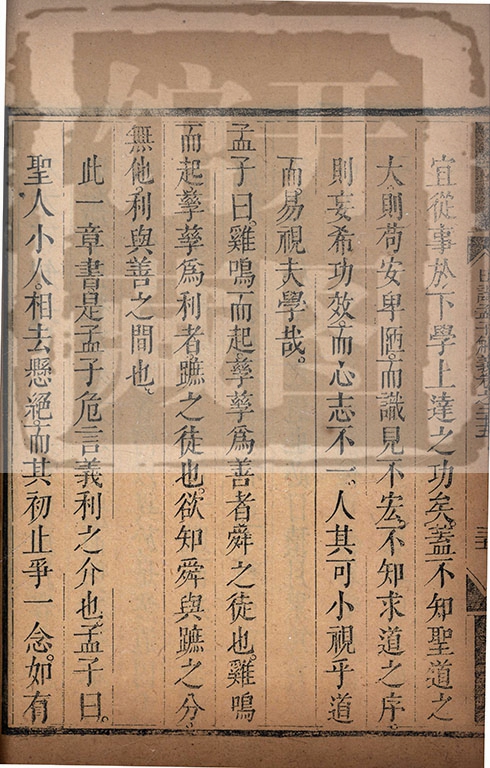 宜從事於下學上達之功矣。蓋不知聖道之
大則苟安卑陋。而識見不宏。不知求道之序。
則妄希功效。而心志不一。人其可小視乎道
而易視夫學哉。
孟子曰。雞鳴而起孳孳爲善者舜之徒也。雞鳴
而起孳孳爲利者蹠之徒也。欲知舜與蹠之分。
無他。利與善之間也。
此一章書。是孟子危言義利之介也。孟子曰。
聖人小人。相去懸絕。而其初止爭一念。如有